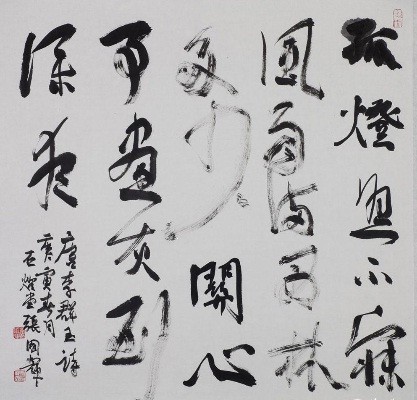 孤燈照不寐
風雨滿西林
多少關心
事畫灰到
深夜
唐李群玉詩
庚寅春月
堂張國